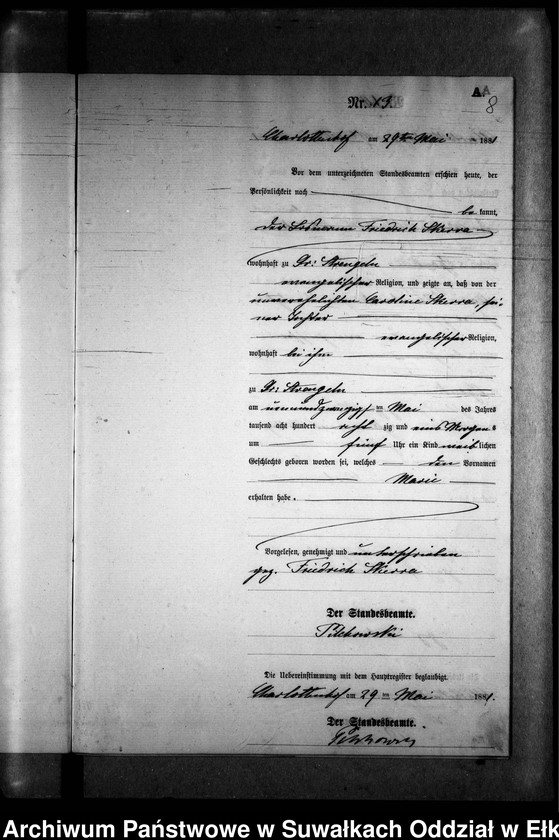 AA
8
Nr. 13.
Charlottenhof am 29ten Mai 1881
Vor dem unterzeichneten Standesbeamten erschien heute, der
Persönlichkeit nach
be kannt,
der Losmann Friedrich Skierra
wohnhaft zu Gr: Strengeln
evangelischer Religion, und zeigte an, daß von der
unverehelichten Caroline Skierra, sei-
ner Tochter
evangelischer Religion,
wohnhaft bei ihm
zu Gr: Strengeln
am neunundzwanzigsten Mai des Jahres
tausend acht hundert acht zig und eins Morgens
um fünf Uhr ein Kind weiblichen
Geschlechts geboren worden sei, welches den Vornamen
Marie
erhalten habe.
Vorgelesen, genehmigt und unterschrieben
gez. Friedrich Skierra
Der Standesbeamte.
Die Uebereinstimmung mit dem Hauptregister beglaubigt.
Charlottenhof am 29 ten Mai 1881.
Der Standesbeamte.
Archiwum Państwowe w Suwałkach Oddział w Ełk